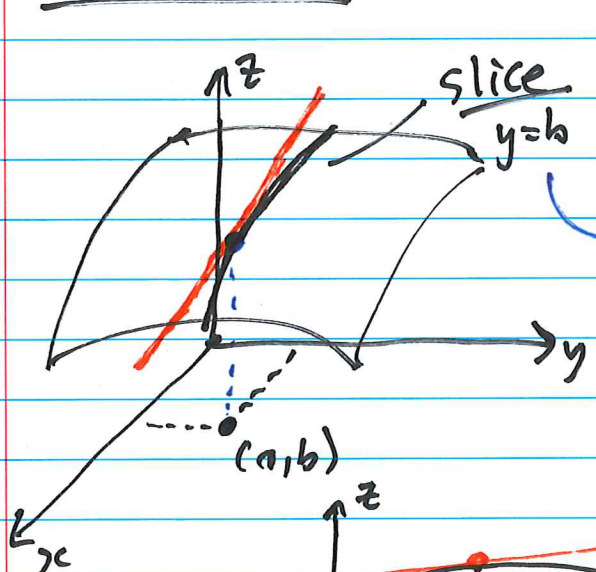 z
slice
y=b
y
(a,b)
x
z